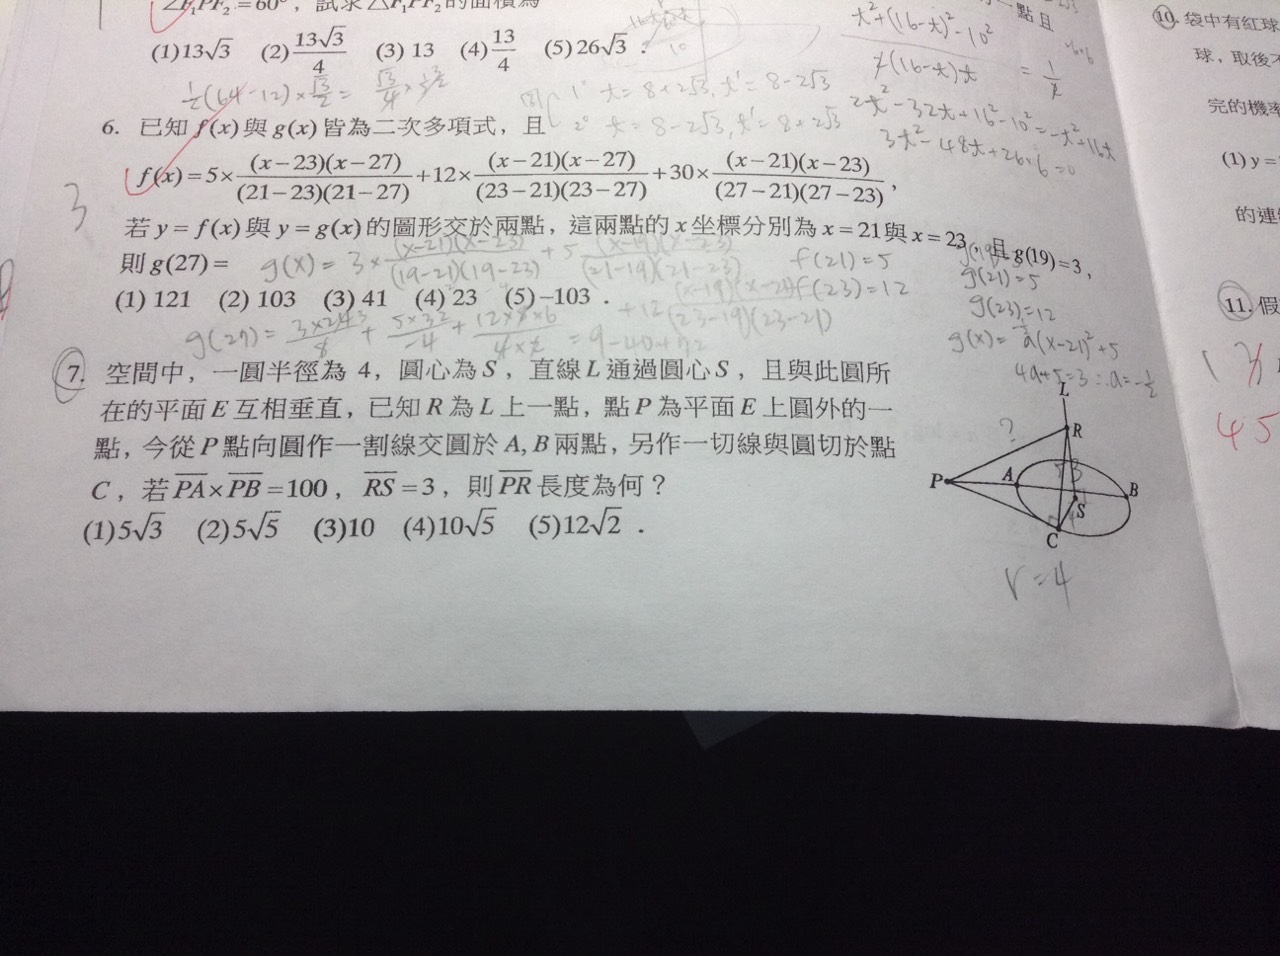 ∠F₁PF₂=60°，試求△F₁PF₂的面積為
(1)13√3 (2)13√3/4 (3) 13 (4)13/4 (5)26√3．
½(64-12)×√3/2=
1° t=8+2√3, t'=8-2√3
2° t=8-2√3, t'=8+2√3
t²+(16-t)²-10²
(16-t)t
2t²-32t+16²-10²=-t²+16t
6. 已知 f(x)與 g(x)皆為二次多項式，且
f(x)=5×(x-23)(x-27)/(21-23)(21-27)+12×(x-21)(x-27)/(23-21)(23-27)+30×(x-21)(x-23)/(27-21)(27-23)，
3
若 y=f(x)與 y=g(x)的圖形交於兩點，這兩點的 x 坐標分別為 x=21與 x=23，且 g(19)=3，
則 g(27)=
g(x)=3×(x-21)(x-23)/(19-21)(19-23)+5(x-19)(x-23)/(21-19)(21-23)
+12(x-19)(x-21)/(23-19)(23-21)
f(21)=5
f(23)=12
g(21)=5
g(23)=12
g(x)=a(x-21)²+5
4a+5=3 ∴a=-½
(1) 121 (2) 103 (3) 41 (4) 23 (5)-103．
7. 空間中，一圓半徑為 4，圓心為 S，直線 L 通過圓心 S，且與此圓所
在的平面 E 互相垂直，已知 R 為 L 上一點，點 P 為平面 E 上圓外的一
點，今從 P 點向圓作一割線交圓於 A, B 兩點，另作一切線與圓切於點
C，若 PA×PB=100，RS=3，則 PR 長度為何？
(1)5√3 (2)5√5 (3)10 (4)10√5 (5)12√2．
L
R
?
P
A
B
S
C
r=4
10. 袋中有紅球
球，取後不
完的機率
(1) y=
的連
11. 假
45